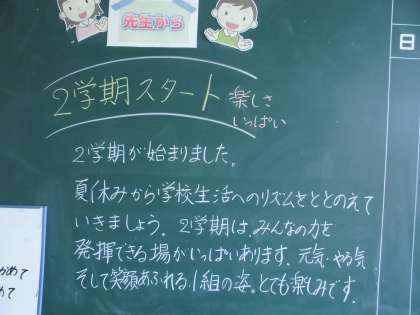 先生から
日
2学期スタート 楽しさ
いっぱい
2学期が始まりました。
夏休みから学校生活へのリズムをととのえて
いきましょう。2学期は、みんなの力を
発揮できる場がいっぱいあります。元気・やる気
そして笑顔あふれる1組の姿。とても楽しみです。
めて
めて